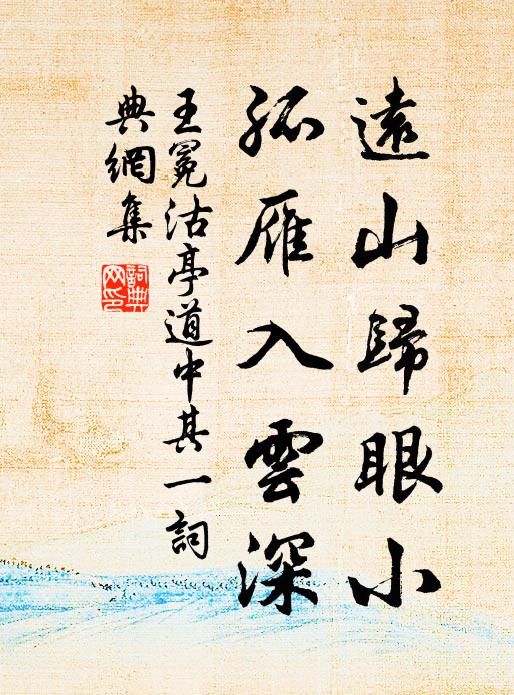 遠山歸眼小
孤雁入雲深
王冕沽亭道中其一詞
典網集
詞典
网印